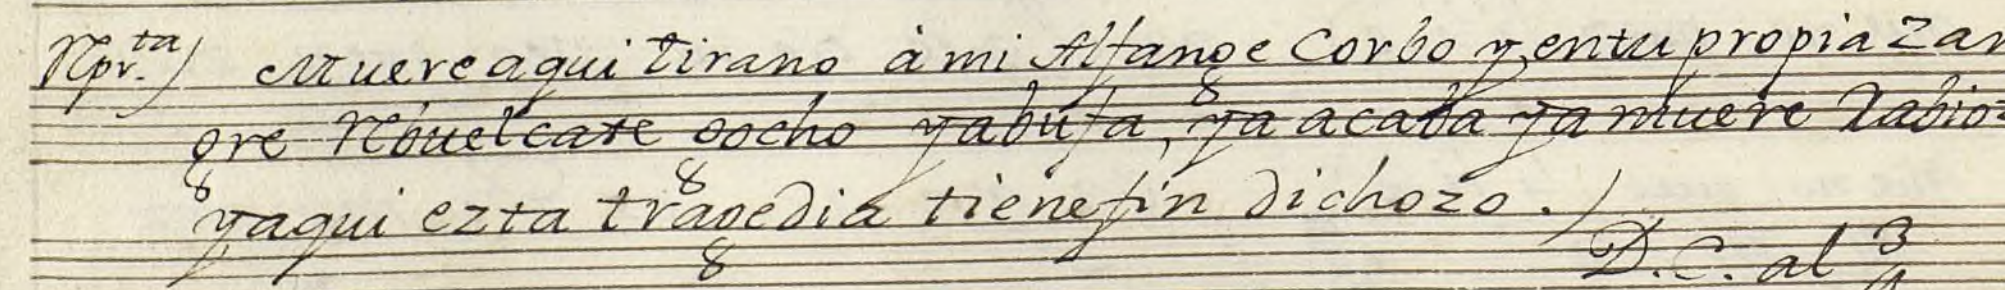 Rpr.ta) Muere aqui tirano à mi Alfange Corbo y, en tu propia zan
gre Rebuelcate gocho yabufa, ya acaba ya muere Rabioz
yaqui ezta tragedia tiene fin dichozo.)
D.C. al 3/4